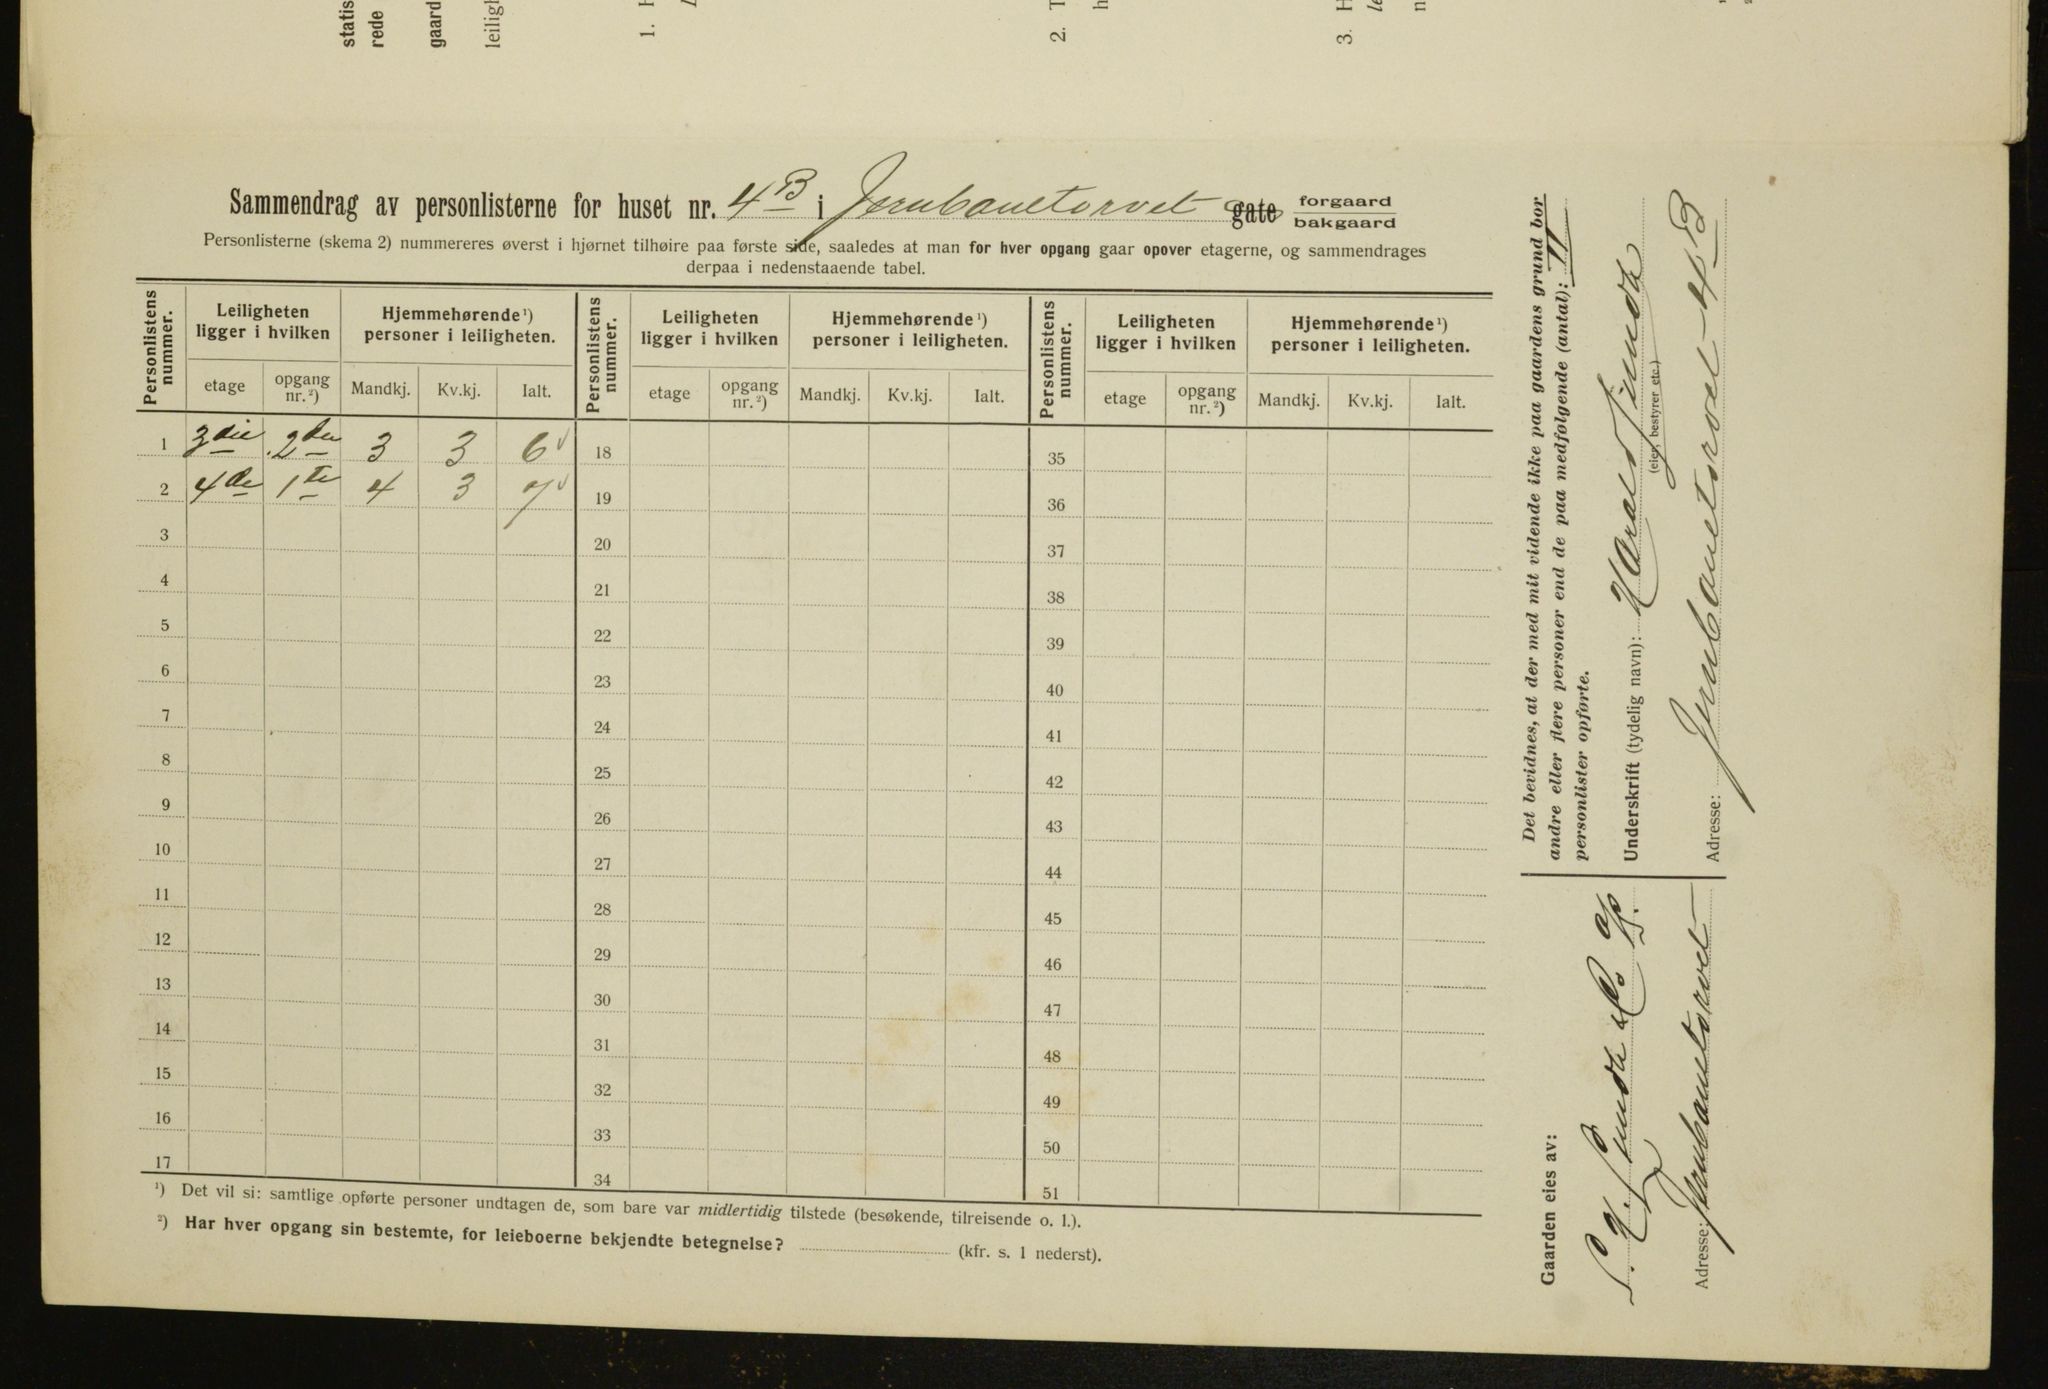 statis
rede
gaard
leiligh
1. H
2. T
h
3. H
le
n
Sammendrag av personlisterne for huset nr. 4B i Jernbanetorvet gate forgaard
bakgaard
Personlisterne (skema 2) nummereres øverst i hjørnet tilhøire paa første side, saaledes at man for hver opgang gaar opover etagerne, og sammendrages
derpaa i nedenstaaende tabel.
Personlistens nummer. Leiligheten ligger i hvilken Hjemmehørende ¹) personer i leiligheten. Personlistens nummer. Leiligheten ligger i hvilken Hjemmehørende ¹) personer i leiligheten. Personlistens nummer. Leiligheten ligger i hvilken Hjemmehørende ¹) personer i leiligheten.
etage opgang nr. ²) Mandkj. Kv.kj. Ialt. etage opgang nr. ²) Mandkj. Kv.kj. Ialt. etage opgang nr. ²) Mandkj. Kv.kj. Ialt.
1 3die 2den 3 3 6 18 35
2 4de 1te 4 3 7 19 36
3 20 37
4 21 38
5 22 39
6 23 40
7 24 41
8 25 42
9 26 43
10 27 44
11 28 45
12 29 46
13 30 47
14 31 48
15 32 49
16 33 50
17 34 51
¹) Det vil si: samtlige opførte personer undtagen de, som bare var midlertidig tilstede (besøkende, tilreisende o. l.).
²) Har hver opgang sin bestemte, for leieboerne bekjendte betegnelse? (kfr. s. 1 nederst).
Det bevidnes, at der med mit vidende ikke paa gaardens grund bor
andre eller flere personer end de paa medfølgende (antal): 11
personlister opførte.
Underskrift (tydelig navn): Harald Sunde
(eier, bestyrer etc.)
Adresse: Jernbanetorvet 4B
Gaarden eies av:
S. H. Sunde & Co
Adresse: Jernbanetorvet